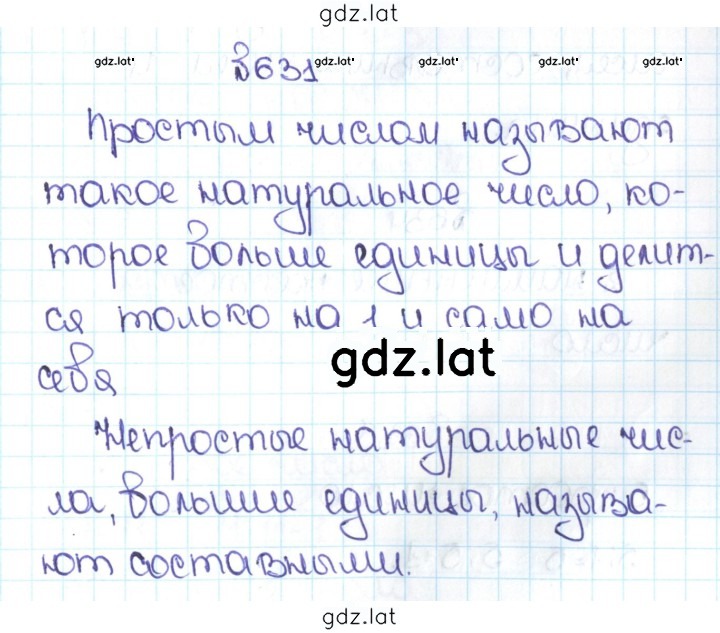 gdz.lat
gdz.lat gdz.lat gdz.lat gdz.lat gdz.lat gdz.lat
№631
Простым числом называют
такое натуральное число, ко-
торое больше единицы и делит-
ся только на 1 и само на
gdz.lat
себя
Непростые натуральные чис-
ла, больше единицы, называ-
ют составными.
gdz.lat